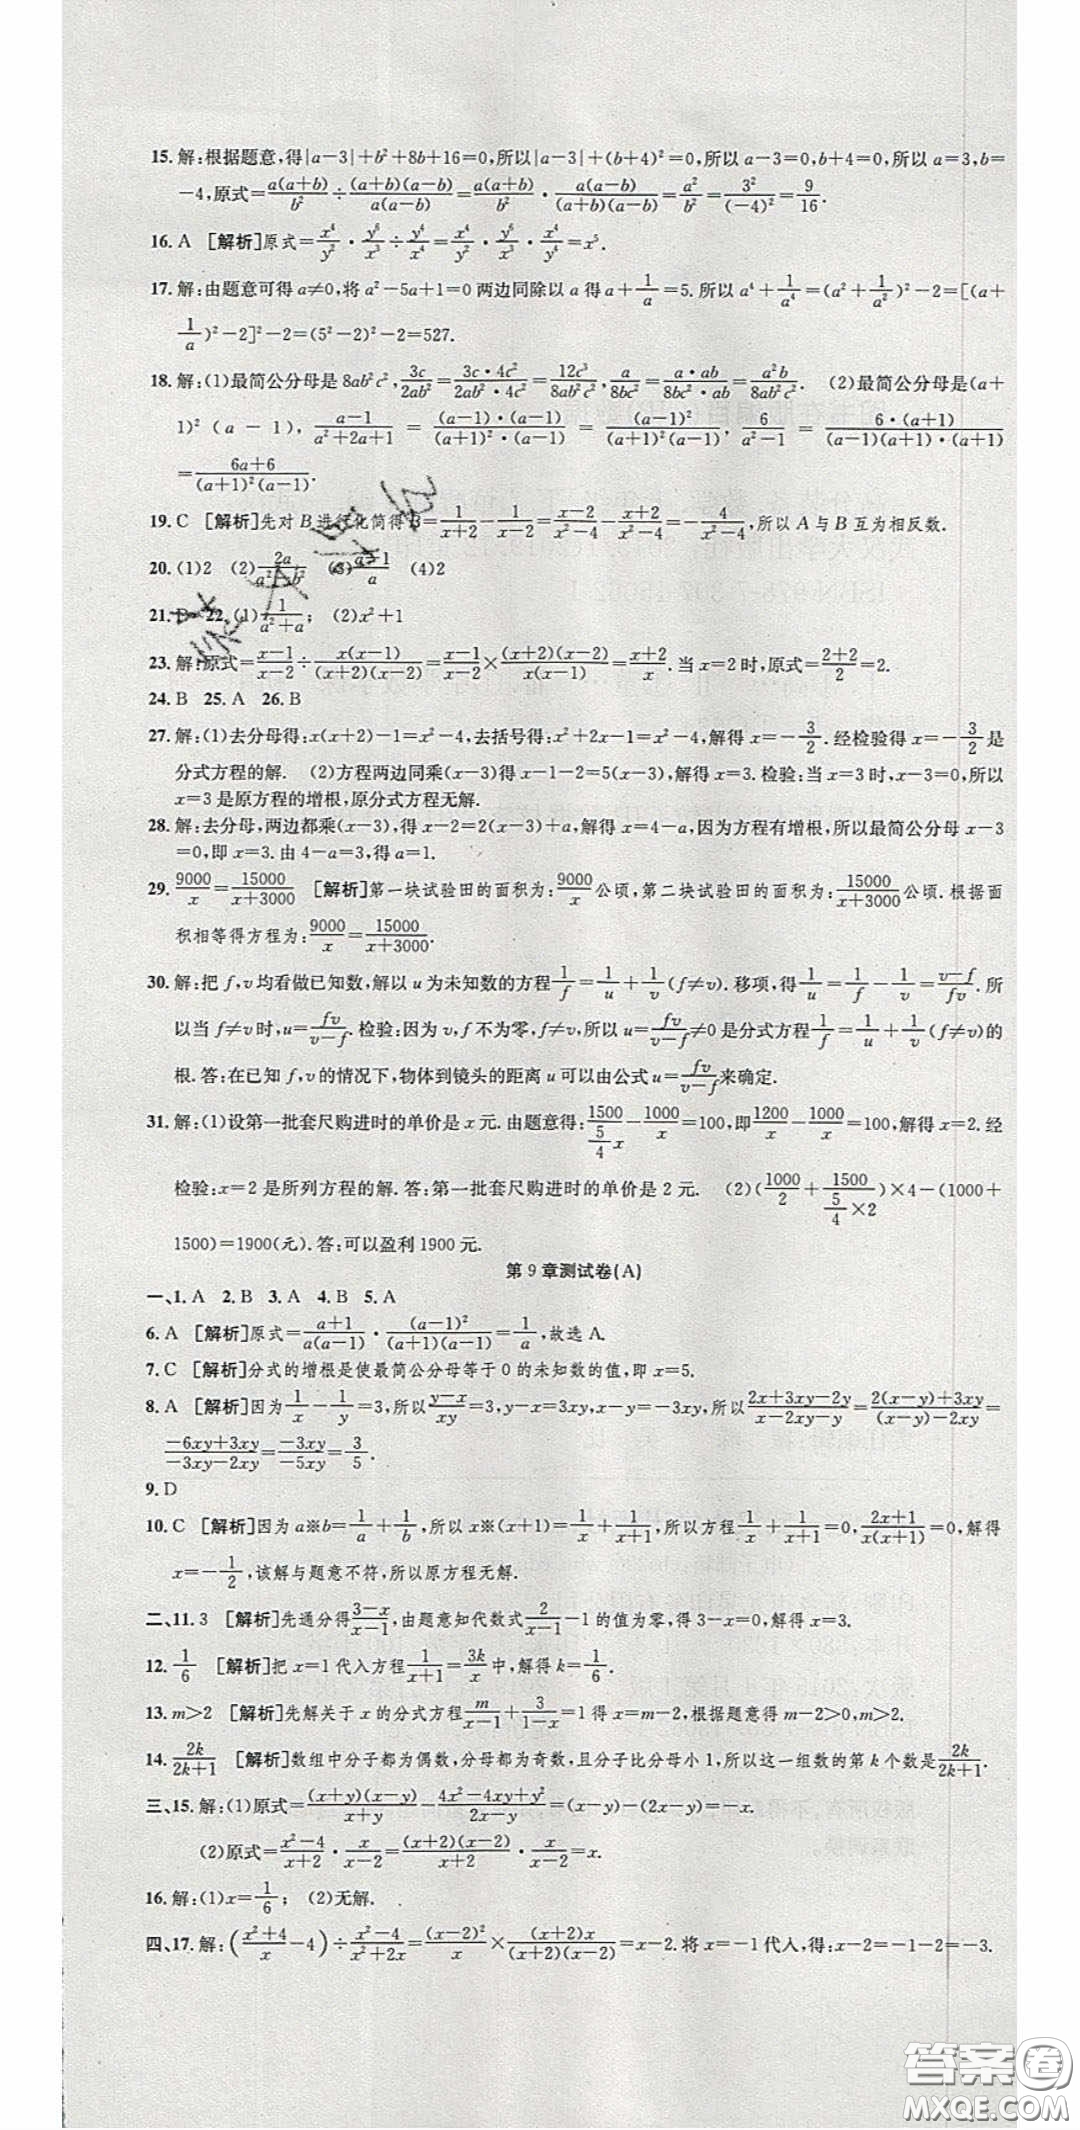 15. 解:根据题意,得|a-3|+b²+8b+16=0,所以|a-3|+(b+4)²=0,所以a-3=0,b+4=0,所以a=3,b=
-4,原式=a(a+b)/b²÷(a+b)(a-b)/a(a-b)=a(a+b)/b²·a(a-b)/(a+b)(a-b)=a²/b²=3²/(-4)²=9/16.
16. A [解析]原式=x⁴/y²·y⁶/x³÷y⁴/x⁴=x⁴/y²·y⁶/x³·x⁴/y⁴=x⁵.
17. 解:由题意可得a≠0,将a²-5a+1=0两边同除以a得a+1/a=5.所以a⁴+1/a⁴=(a²+1/a²)²-2=[(a+
1/a)²-2]²-2=(5²-2)²-2=527.
18. 解:(1)最简公分母是8ab²c²,3c/2ab²=3c·4c²/2ab²·4c²=12c³/8ab²c²,a/8bc²=a·ab/8bc²·ab=a²b/8ab²c². (2)最简公分母是(a+
1)²(a-1),a-1/a²+2a+1=(a-1)·(a-1)/(a+1)²·(a-1)=(a-1)²/(a+1)²(a-1),6/a²-1=6·(a+1)/(a-1)(a+1)·(a+1)
=6a+6/(a+1)²(a-1).
19. C [解析]先对B进行化简得B=1/x+2-1/x-2=x-2/x²-4-x+2/x²-4=-4/x²-4,所以A与B互为相反数.
20. (1)2 (2)2a/a²-b² (3)a-1/a (4)2
21. D 22. (1)1/a²+a; (2)x²+1
23. 解:原式=x-1/x-2÷x(x-1)/(x+2)(x-2)=x-1/x-2×(x+2)(x-2)/x(x-1)=x+2/x.当x=2时,原式=2+2/2=2.
24. B 25. A 26. B
27. 解:(1)去分母得:x(x+2)-1=x²-4,去括号得:x²+2x-1=x²-4,解得x=-3/2.经检验得x=-3/2是
分式方程的解. (2)方程两边同乘(x-3)得x-1-2=5(x-3),解得x=3.检验:当x=3时,x-3=0,所以
x=3是原方程的增根,原分式方程无解.
28. 解:去分母,两边都乘(x-3),得x-2=2(x-3)+a,解得x=4-a,因为方程有增根,所以最简公分母x-3
=0,即x=3.由4-a=3,得a=1.
29. 9000/x=15000/x+3000 [解析]第一块试验田的面积为:9000/x公顷,第二块试验田的面积为:15000/x+3000公顷.根据面
积相等得方程为:9000/x=15000/x+3000.
30. 解:把f,v均看做已知数,解以u为未知数的方程1/f=1/u+1/v(f≠v).移项,得1/u=1/f-1/v=v-f/fv.所
以当f≠v时,u=fv/v-f.检验:因为v,f不为零,f≠v,所以u=fv/v-f≠0是分式方程1/f=1/u+1/v(f≠v)的
根.答:在已知f,v的情况下,物体到镜头的距离u可以由公式u=fv/v-f来确定.
31. 解:(1)设第一批套尺购进时的单价是x元.由题意得:1500/(5/4)x-1000/x=100,即1200/x-1000/x=100,解得x=2.经
检验:x=2是所列方程的解.答:第一批套尺购进时的单价是2元. (2)(1000/2+1500/(5/4)×2)×4-(1000+
1500)=1900(元).答:可以盈利1900元.
第9章测试卷(A)
一、1. A 2. B 3. A 4. B 5. A
6. A [解析]原式=a+1/a(a-1)·(a-1)²/(a+1)(a-1)=1/a,故选A.
7. C [解析]分式的增根是使最简公分母等于0的未知数的值,即x=5.
8. A [解析]因为1/x-1/y=3,所以y-x/xy=3,y-x=3xy,x-y=-3xy,所以2x+3xy-2y/x-2xy-y=2(x-y)+3xy/(x-y)-2xy=
-6xy+3xy/-3xy-2xy=-3xy/-5xy=3/5.
9. D
10. C [解析]因为a※b=1/a+1/b,所以x※(x+1)=1/x+1/x+1,所以方程1/x+1/x+1=0,2x+1/x(x+1)=0,解得
x=-1/2,该解与题意不符,所以原方程无解.
二、11. 3 [解析]先通分得3-x/x-1,由题意知代数式2/x-1-1的值为零,得3-x=0,解得x=3.
12. 1/6 [解析]把x=1代入方程1/x+1=3k/x中,解得k=1/6.
13. m>2 [解析]先解关于x的分式方程m/x-1+3/1-x=1得x=m-2,根据题意得m-2>0,m>2.
14. 2k/2k+1 [解析]数组中分子都为偶数,分母都为奇数,且分子比分母小1,所以这一组数的第k个数是2k/2k+1.
三、15. 解:(1)原式=(x+y)(x-y)/x+y-4x²-4xy+y²/2x-y=(x-y)-(2x-y)=-x.
(2)原式=x²-4/x+2·x/x-2=(x+2)(x-2)/x+2·x/x-2=x.
16. 解:(1)x=1/6; (2)无解.
四、17. 解:(x²+4/x-4)÷x²-4/x²+2x=(x-2)²/x×(x+2)x/(x+2)(x-2)=x-2.将x=-1代入,得:x-2=-1-2=-3.
答案圈
MXQE.COM